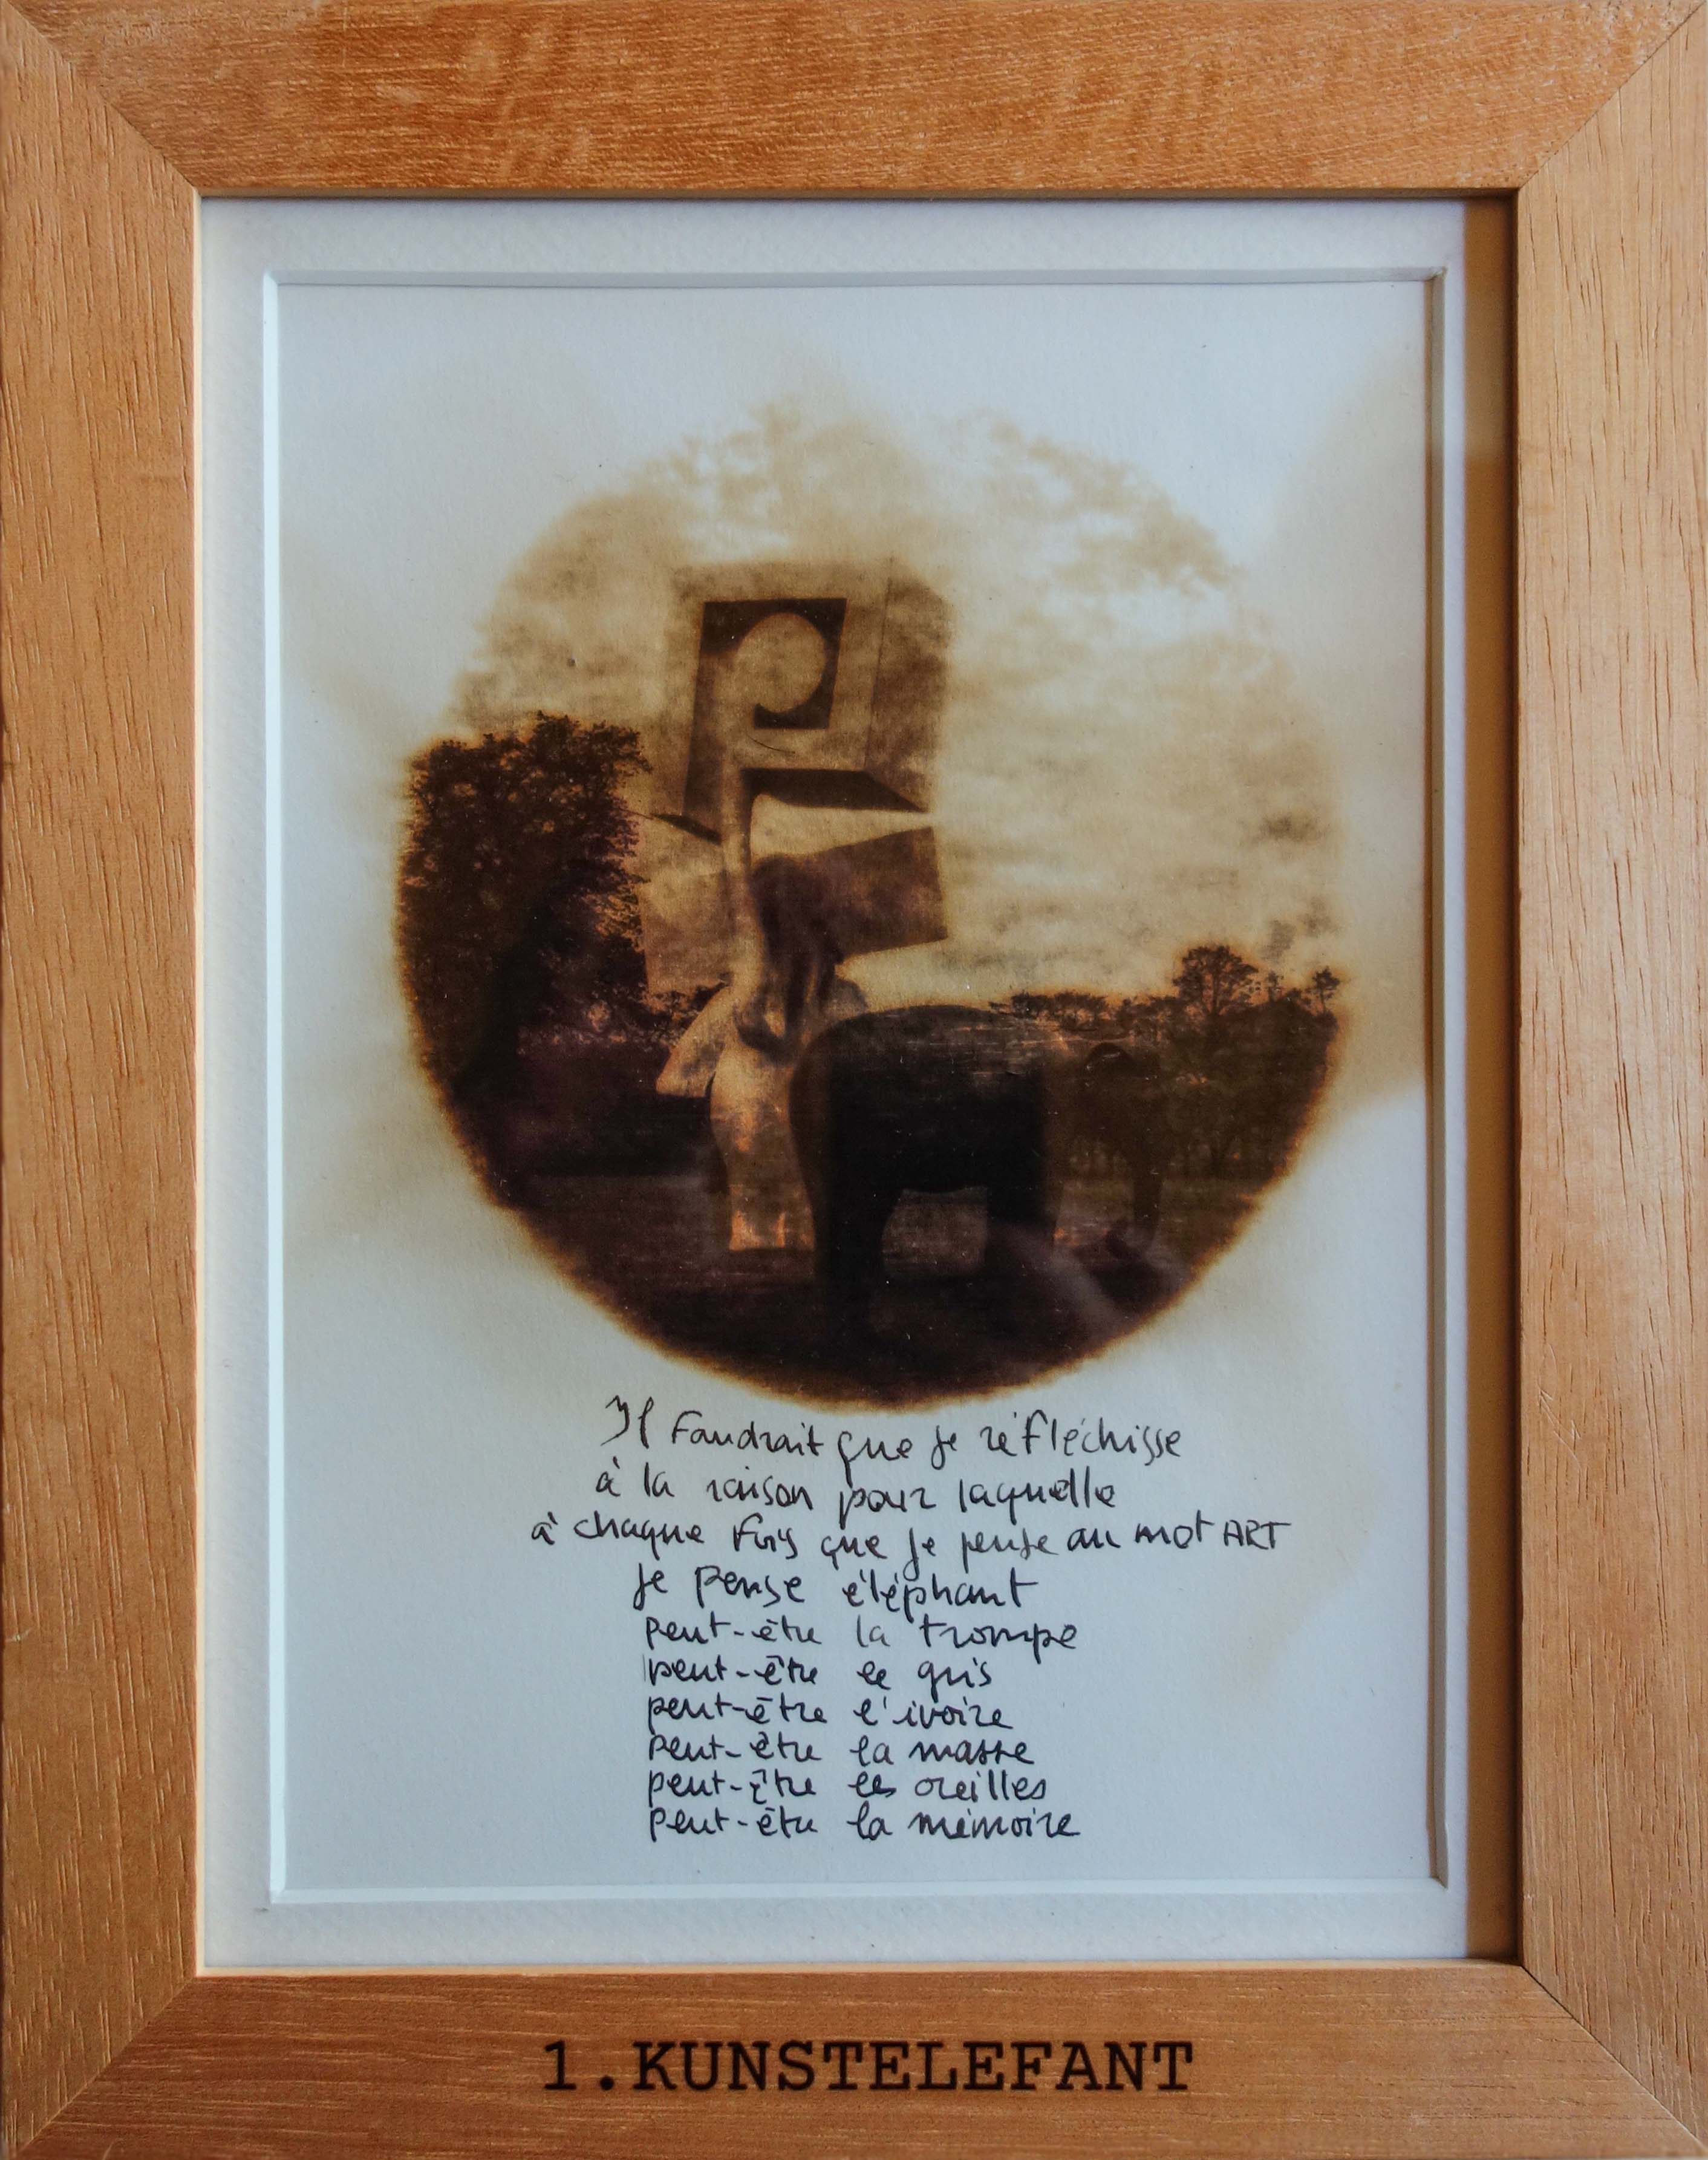 Il faudrait que je réfléchisse
à la raison pour laquelle
à chaque fois que je pense au mot ART
je pense éléphant
peut-être la trompe
peut-être le gris
peut-être l'ivoire
peut-être la masse
peut-être les oreilles
peut-être la mémoire
1.KUNSTELEFANT